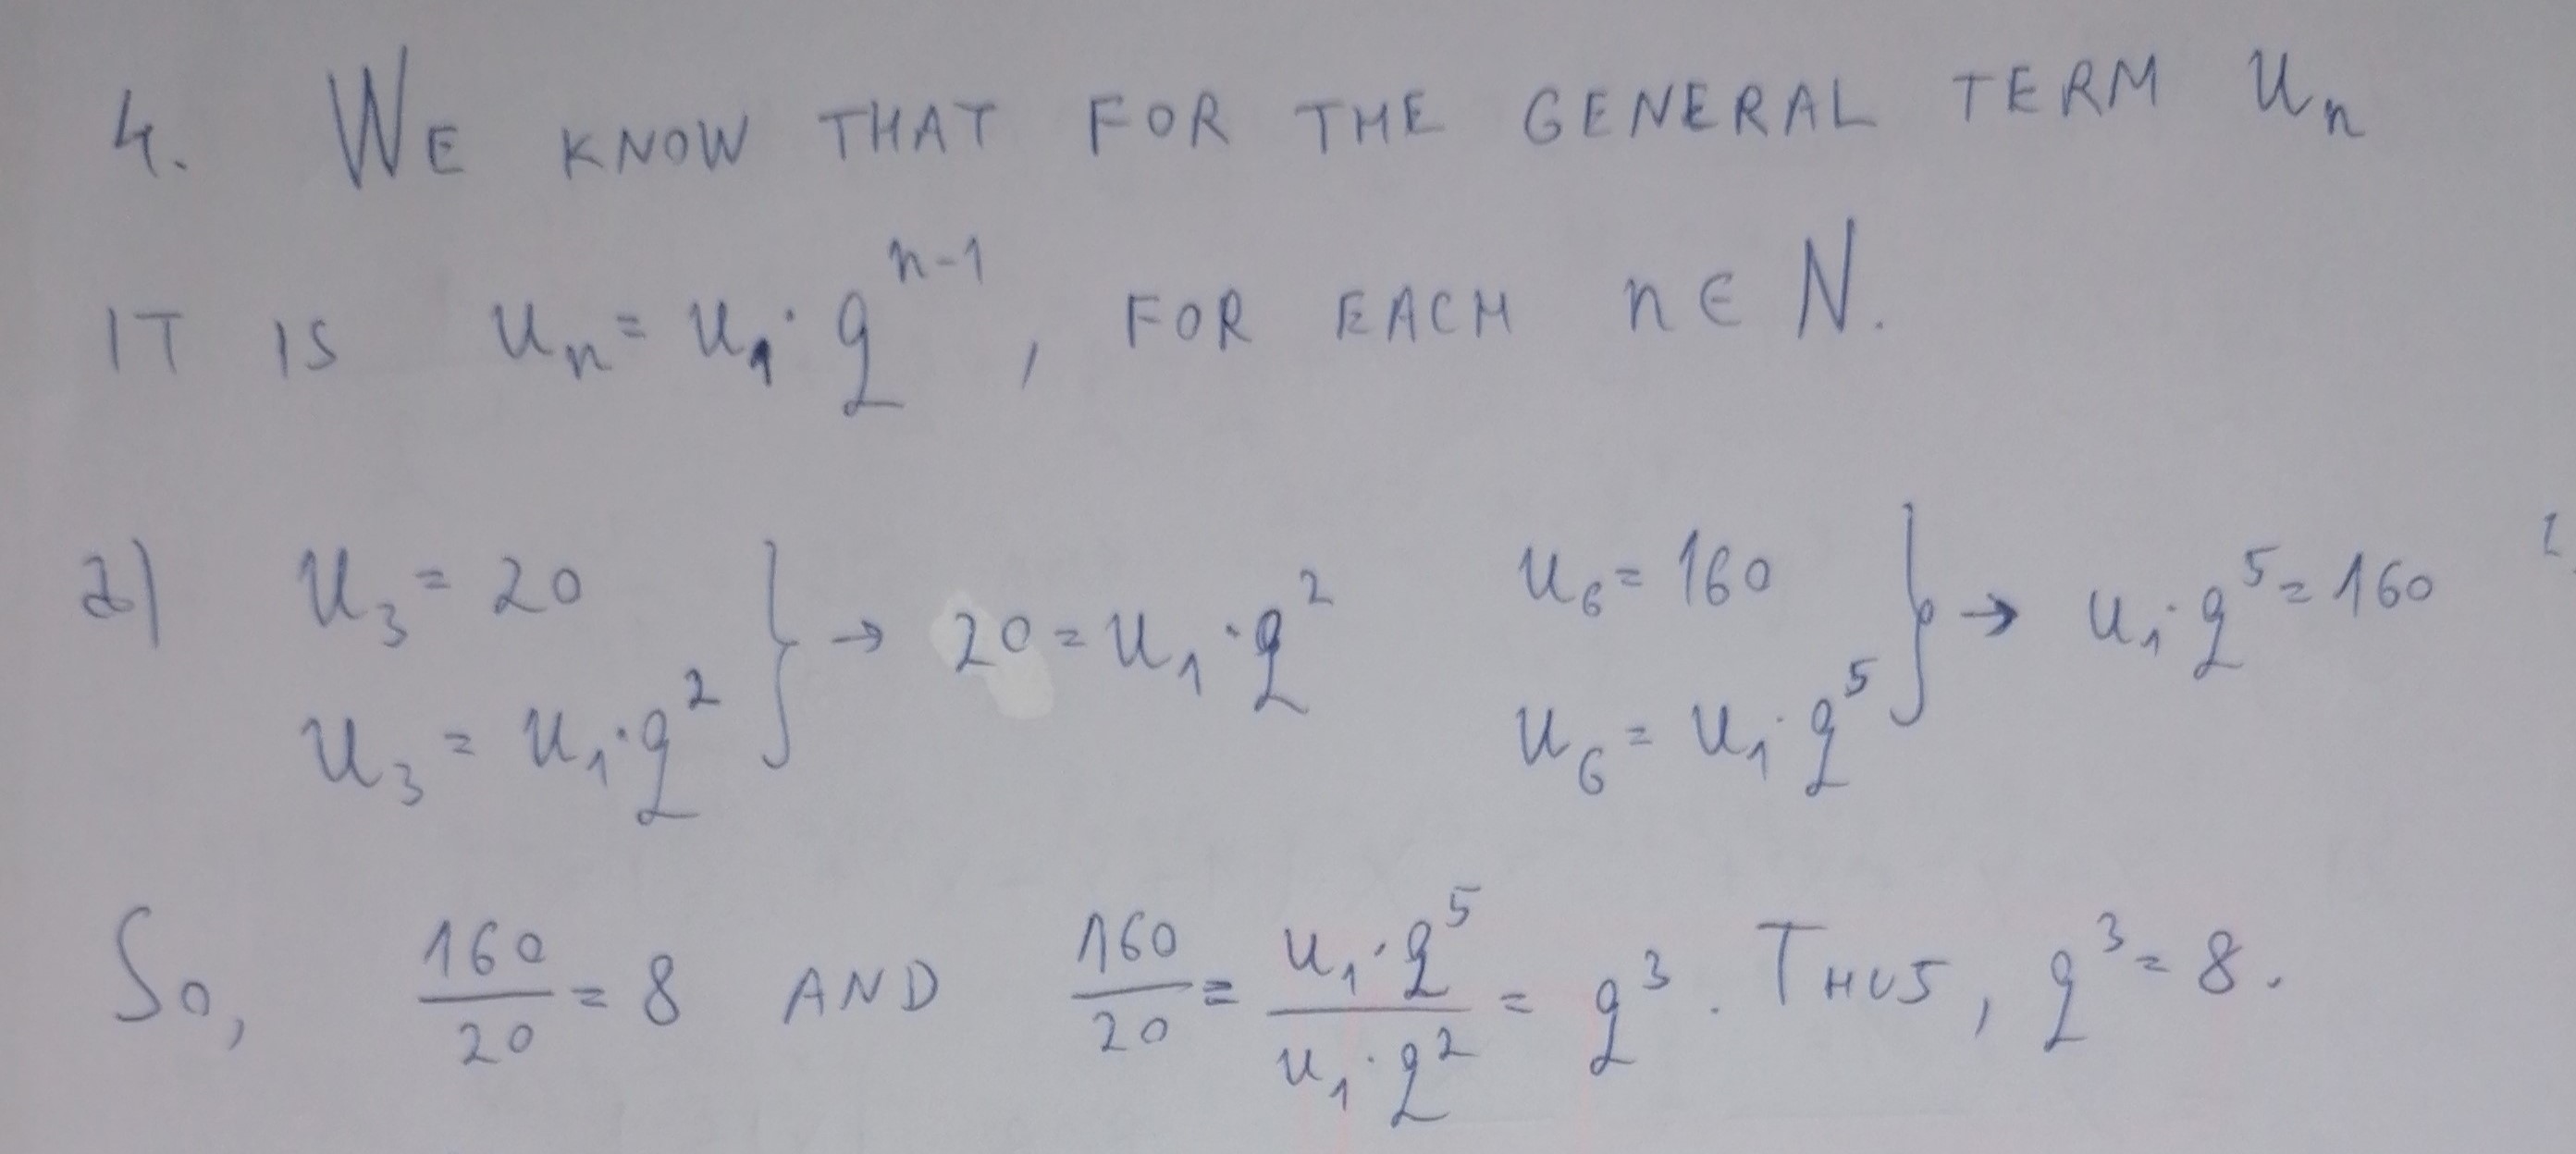 4. WE KNOW THAT FOR THE GENERAL TERM uₙ
IT IS uₙ = u₁ · qⁿ⁻¹, FOR EACH n ∈ N.
a) u₃ = 20 } → 20 = u₁ · q² u₆ = 160 } → u₁ · q⁵ = 160
u₃ = u₁ · q² u₆ = u₁ · q⁵
So, 160/20 = 8 AND 160/20 = u₁ · q⁵ / u₁ · q² = q³. THUS, q³ = 8.